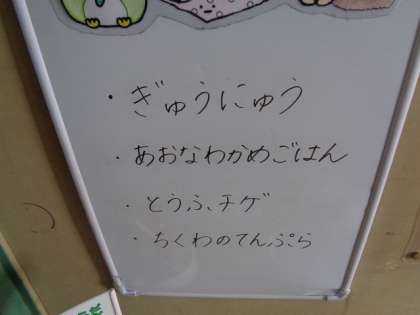 ・ぎゅうにゅう
・あおなわかめごはん
・とうふチゲ
・ちくわのてんぷら